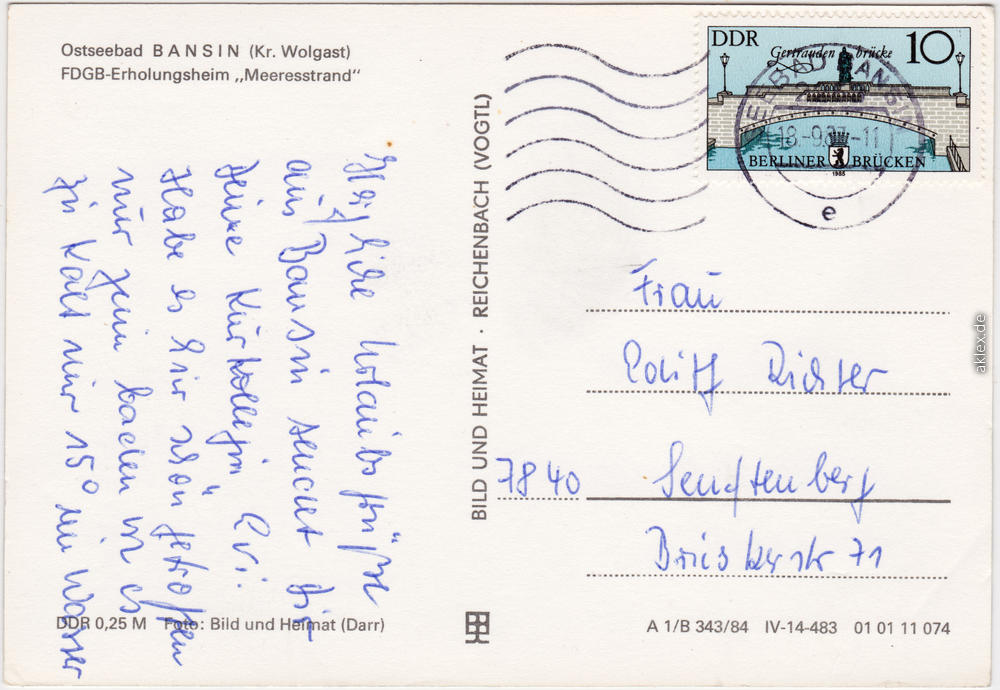 Ostseebad BANSIN (Kr. Wolgast)
FDGB-Erholungsheim „Meeresstrand“
Herzliche Urlaubsgrüße
aus Bansin sendet dir
deine Kurkollegin Evi.
Habe es hier schön getroffen
nur zum baden ist es
zu kalt nur 15° im Wasser
DDR 0,25 M Foto: Bild und Heimat (Darr)
BILD UND HEIMAT · REICHENBACH (VOGTL)
DDR Gertraudenbrücke 10
BERLINER BRÜCKEN
1985
SEEBAD BANSIN
18.-9.87.-11
e
Frau
Edith Richter
7840 Senftenberg
Brieskerstr 71
A 1/B 343/84 IV-14-483 01 01 11 074
aklex.de